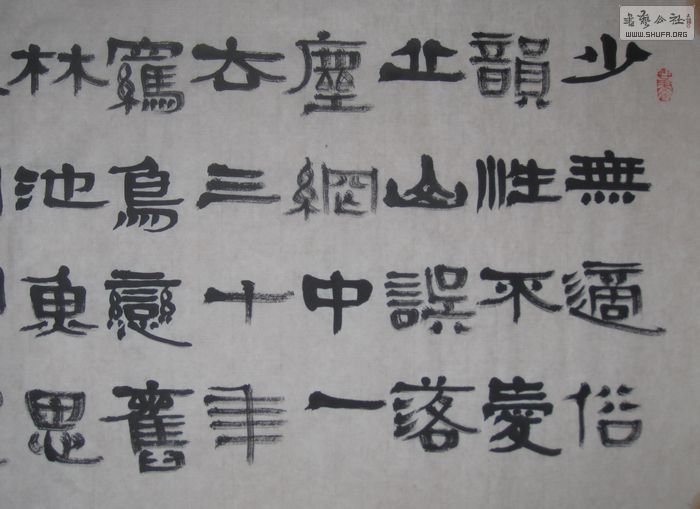 少無適俗
韻性不愛
丘山誤落
塵網中一
去三十年
羈鳥戀舊
林池魚思
书艺公社
WWW.SHUFA.ORG